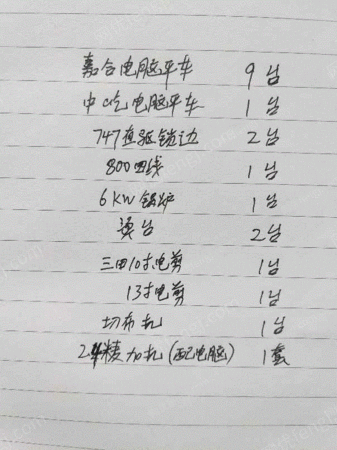 嘉合电脑平车 9台
中屹电脑平车 1台
747直驱锁边 2台
800四线 1台
6KW锅炉 1台
烫台 2台
三田10寸电剪 1台
13寸电剪 1台
切布机 1台
24精加机(配电脑) 1套